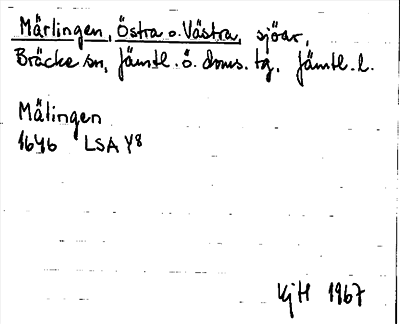 Mårlingen, Östra o. Västra, sjöar,
Bräcke sn, Jämtl. ö. doms. tg. Jämtl. l.
Målingen
1646 LSA Y8
KjH 1967